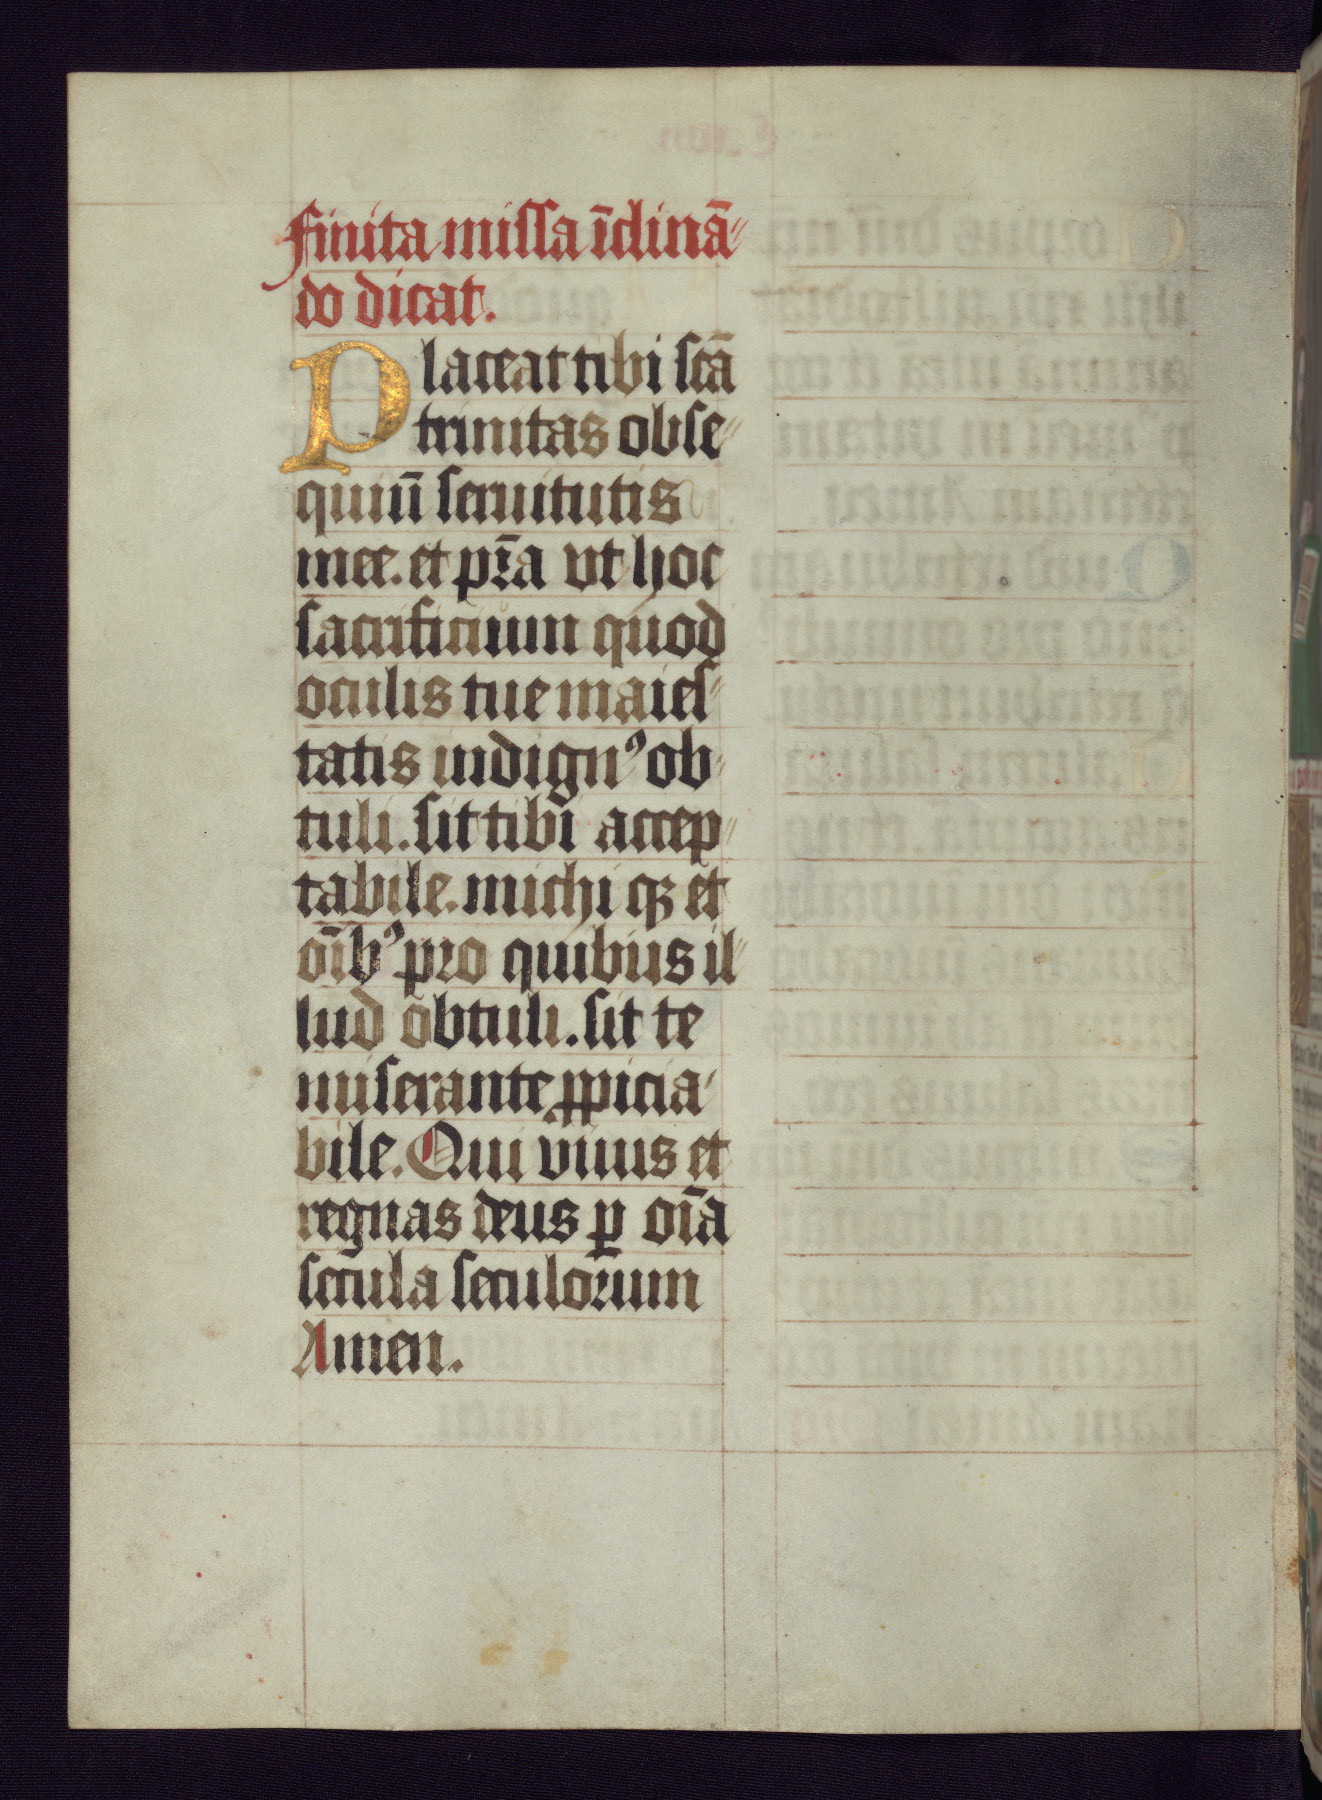 finita missa īclinā
do dicat.
Placeat tibi scā
trinitas obse
quiū seruitutis
mee. et prīa vt hoc
sacrificium quod
oculis tue maies
tatis indignꝰ ob
tuli. sit tibi accep
tabile. michi qꝫ et
oībꝰ pro quibus il
lud obtuli. sit te
miserante ꝓpicia
bile. Qui viuis et
regnas deus ꝑ oīa
secula seculorum
Amen.